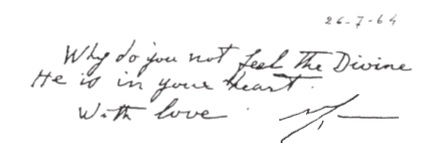 26-7-64
Why do you not feel the Divine
He is in your heart.
With love